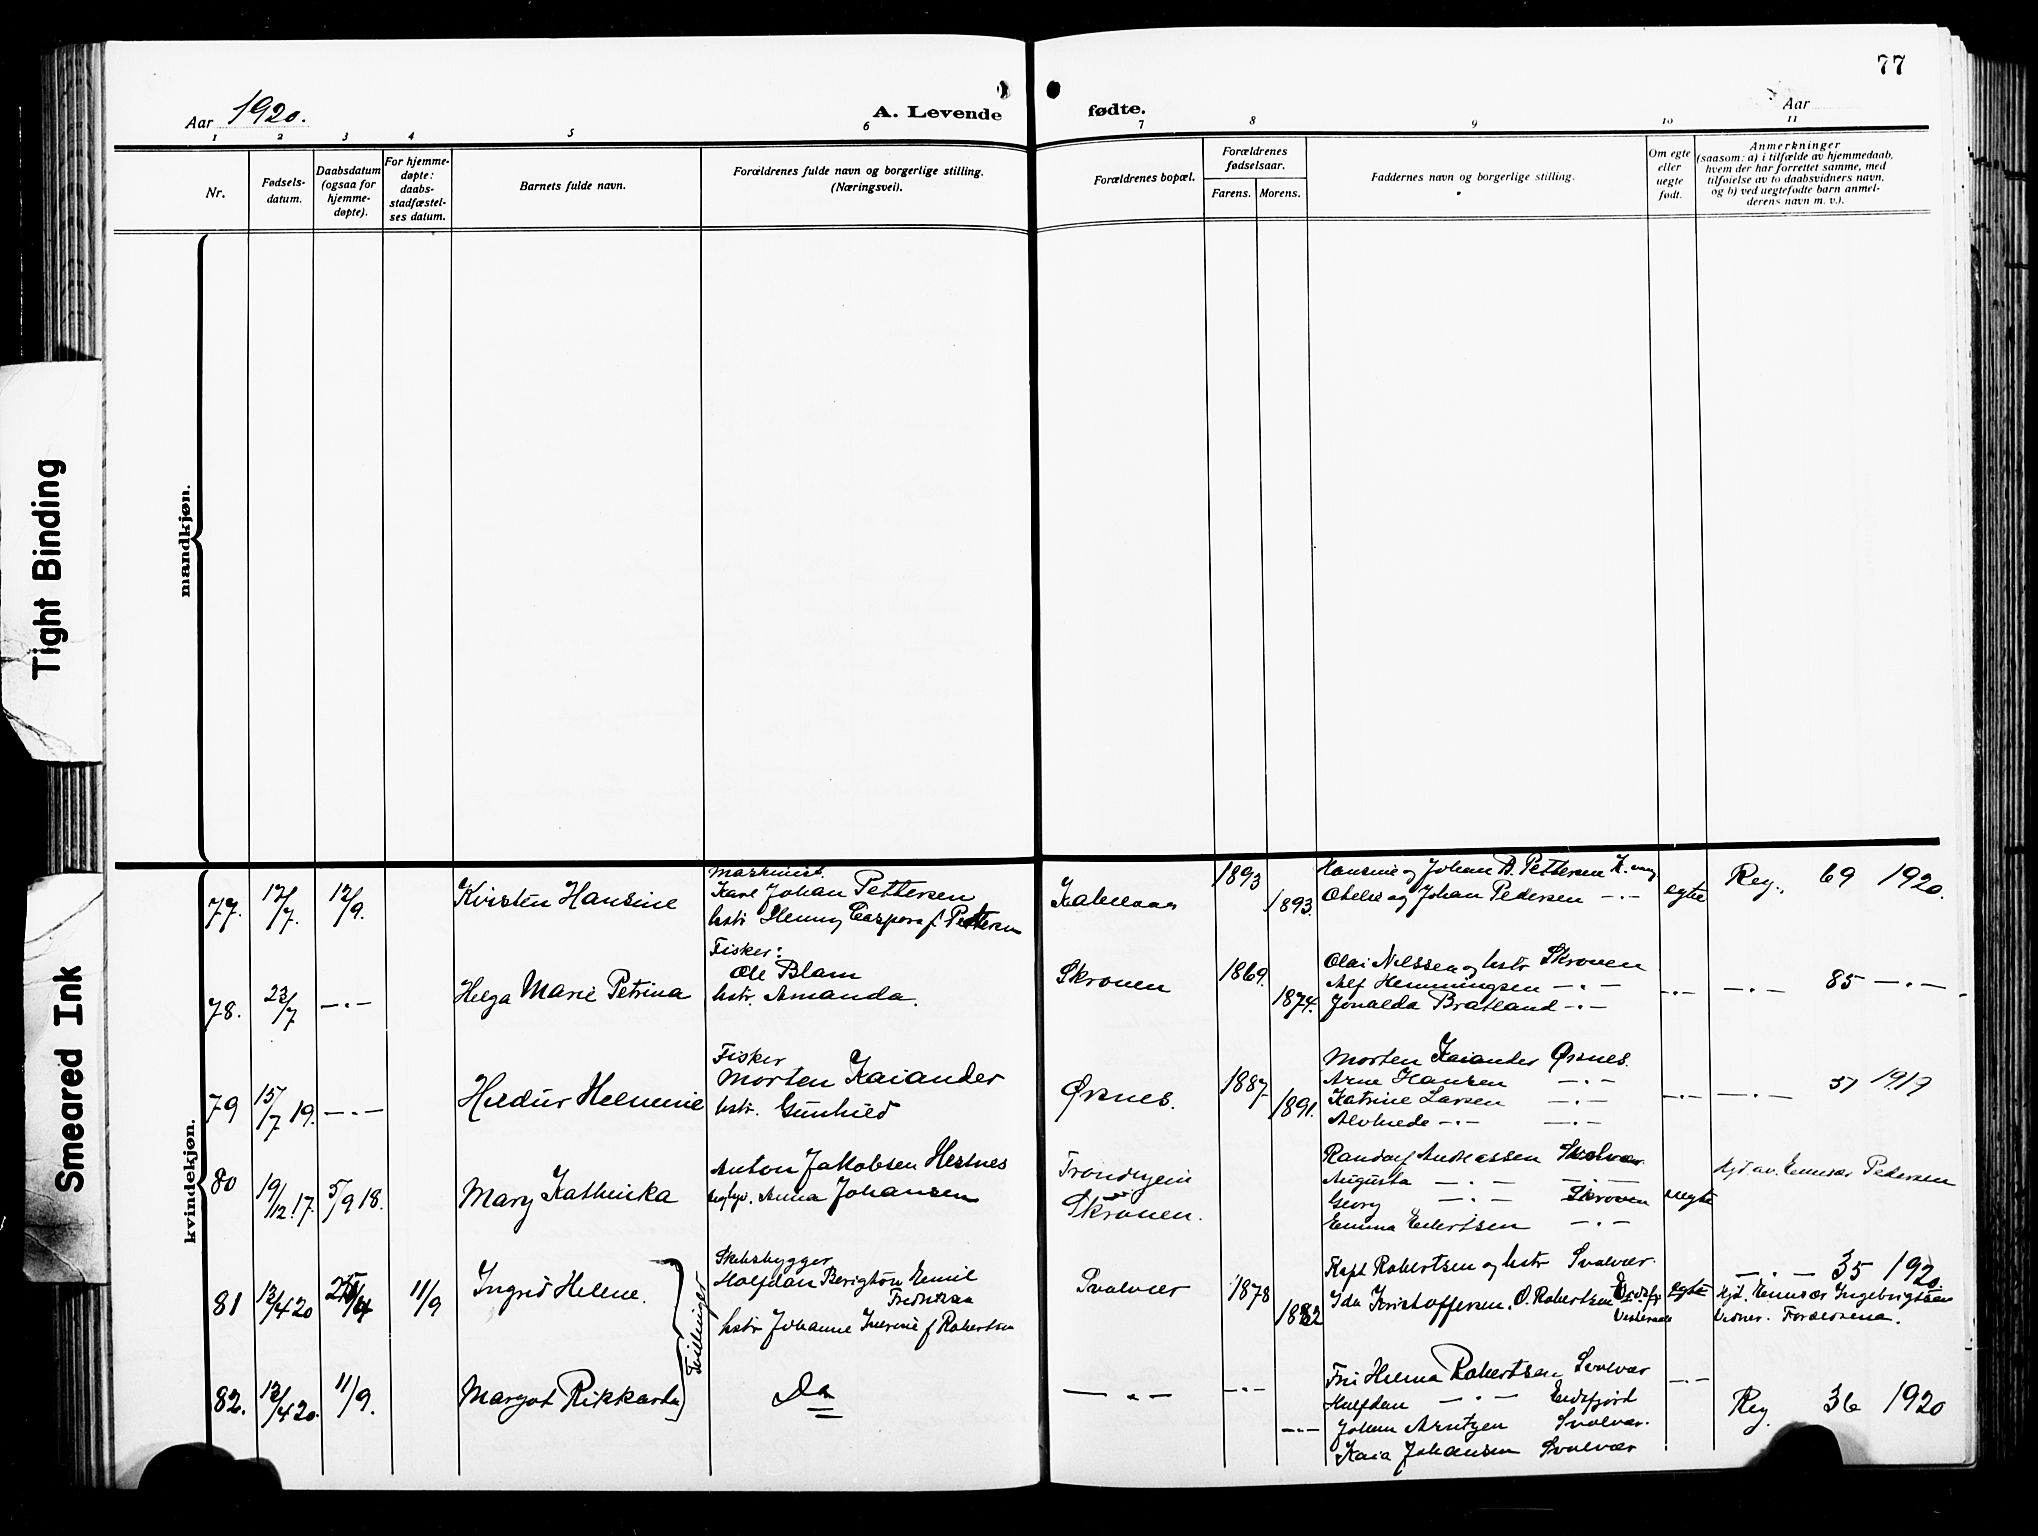 77
Aar 1920.
A. Levende fødte.
Aar
1 2 3 4 5 6 7 8 9 10 11
Nr.
Fødsels-
datum.
Daabsdatum
(ogsaa for
hjemme-
døpte).
For hjemme-
døpte:
daabs-
stadfæstel-
ses datum.
Barnets fulde navn.
Forældrenes fulde navn og borgerlige stilling.
(Næringsvei).
Forældrenes bopæl.
Forældrenes
fødselsaar.
Farens. Morens.
Faddernes navn og borgerlige stilling.
Om egte
eller
uegte
født.
Anmerkninger
(saasom: a) i tilfælde av hjemmedaab,
hvem der har forrettet samme, med
tilføielse av to daabsvidners navn,
og b) ved uegtefødte barn anmel-
derens navn m. v.).
Tight Binding
Smeared Ink
mandkjøn.
kvindekjøn.
77.
12/7.
12/9.
Kirsten Hansine
Maskinist.
Karl Johan Pettersen
hstr Henny Caspara f. Pettersen
Kabelvaag
1893
1893.
Hansine og Johan B. Pettersen K.vaag
Othelie og Johan Pedersen -"-
egte
Reg. 69 1920.
78.
23/7
-"-
Helga Marie Petrina
Fisker:
Ole Blam
hstr. Amanda.
Skroven
1869.
1874.
Olai Nilssen og hstr Skroven
Alf Henningsen -"-
Jonalda Bratland -"-
-"-
-"- 85 -"-
79
15/7 19.
-"-
Herdur Helmine
Fisker
Morten Kaiander
hstr. Gunhild
Ørsnes.
1887
1891.
Morten Kaiander Ørsnes.
Arne Hansen -"-
Katrine Larsen -"-
Alvhilde -"- -"-
-"-
-"- 37 1919
80
19/12.17.
5/9 18.
Mary Kathinka
Anton Jakobsen Hestnes
Anna Johansen
Trondhjem
Skroven.
Randolf Andreassen Skolvær
Augusta -"- -"-
Georg -"- Skroven
Emma Eilertsen -"-
uegte
Hjd av. Pedersen
81
13/4 20
25/4
11/9
Ingrid Helene.
Tvillinger
Skibsbygger
Halfdan Berigton Emil
Fredriksen
hstr Johanne Inervie f Robertsen
Svolvær
1878
1882
Kapt Robertsen og hstr Svolvær.
Ida Kristoffersen, O. Robertsen
egte
-"- 35 1920.
Hjd. Ingebrigtsen
Vidner. Forældrene.
82.
13/4 20.
11/9.
Margot Rikkarda
Do
-"-
-"-
-"-
Fru Helma Robertsen Svolvær
Halfdan -"- Eidsfjord
Johan Arntzen Svolvær.
Kaia Johansen Svolvær
-"-
Reg. 36 1920